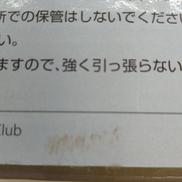 所での保管はしないでください
い。
ますので、強く引っ張らない
Club